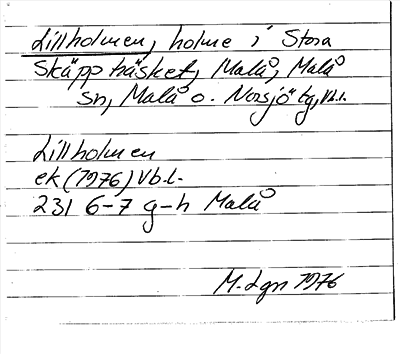 Lillholmen, holme i Stora
Skäppträsket, Malå, Malå
sn, Malå o. Norsjö tg, Vb.l.
Lillholmen
ek (1976) Vb.l.
231 6-7 g-h Malå
M. Lgn 1976